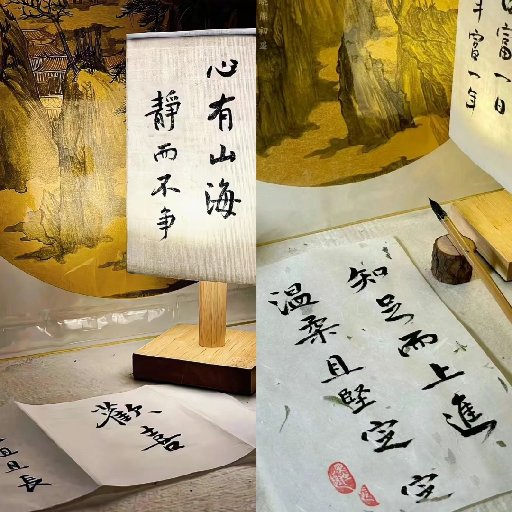 心有山海
靜而不争
歡喜
且長
富一日
富一年
知足而上進
温柔且堅定
定